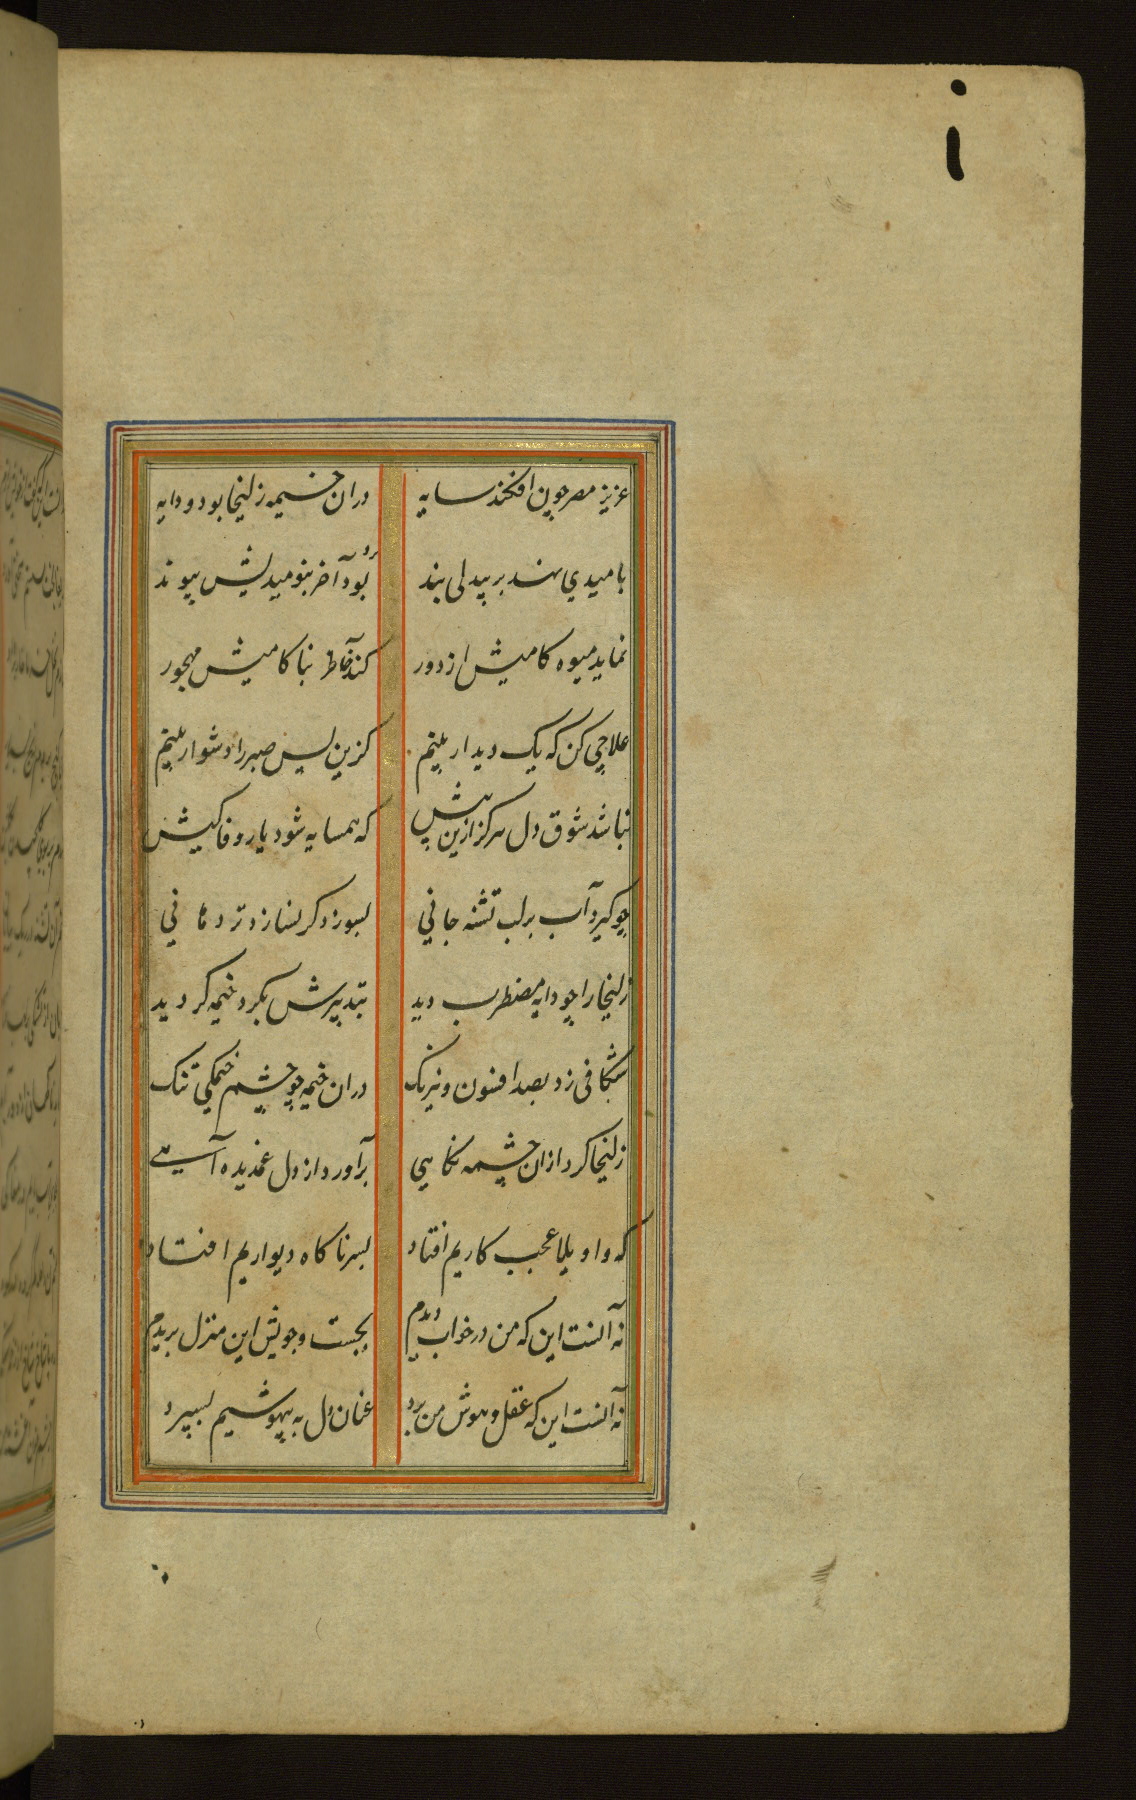 عزیز مصر چون افکند سایه دران خیمه زلیخا بود و دایه
بامیدی نهد بر بیدلی بند برد آخر بنومیدیش پیوند
نماید میوه کامیش از دور کند خاطر بناکامیش مهجور
علاجی کن که یک دیدار بینم کزین پس صبر را دشوار بینم
نباشد شوق دل هرگز ازین بیش که همسایه شود یار وفاکیش
چو گیرد آب بر لب تشنه جانی بسوزد گر نسازد تر دهانی
زلیخا را چو دایه مضطرب دید بتدبیرش بگرد خیمه گردید
شکافی زد بصد افسون و نیرنگ دران خیمه چو چشم خیمگی تنگ
زلیخا کرد ازان چشمه نگاهی برآورد از دل غمدیده آهی
که واویلا عجب کاریم افتاد بسر ناگاه دیواریم افتاد
نه آنست این که من در خواب دیدم بجست و جویش این منزل بریدم
نه آنست این که عقل و هوش من برد عنان دل به بیهوشیم بسپرد